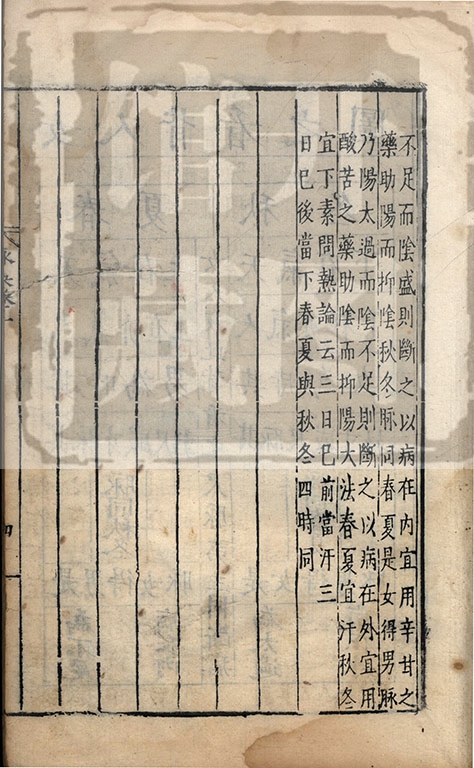 不足而陰盛則斷之以病在內宜用辛甘之
藥助陽而抑陰秋冬脉同春夏是女得男脉
乃陽太過而陰不足則斷之以病在外宜用
酸苦之藥助陰而抑陽大法春夏宜汗秋冬
宜下素問熱論云三日巳前當汗三
日巳後當下春夏與秋冬四時同